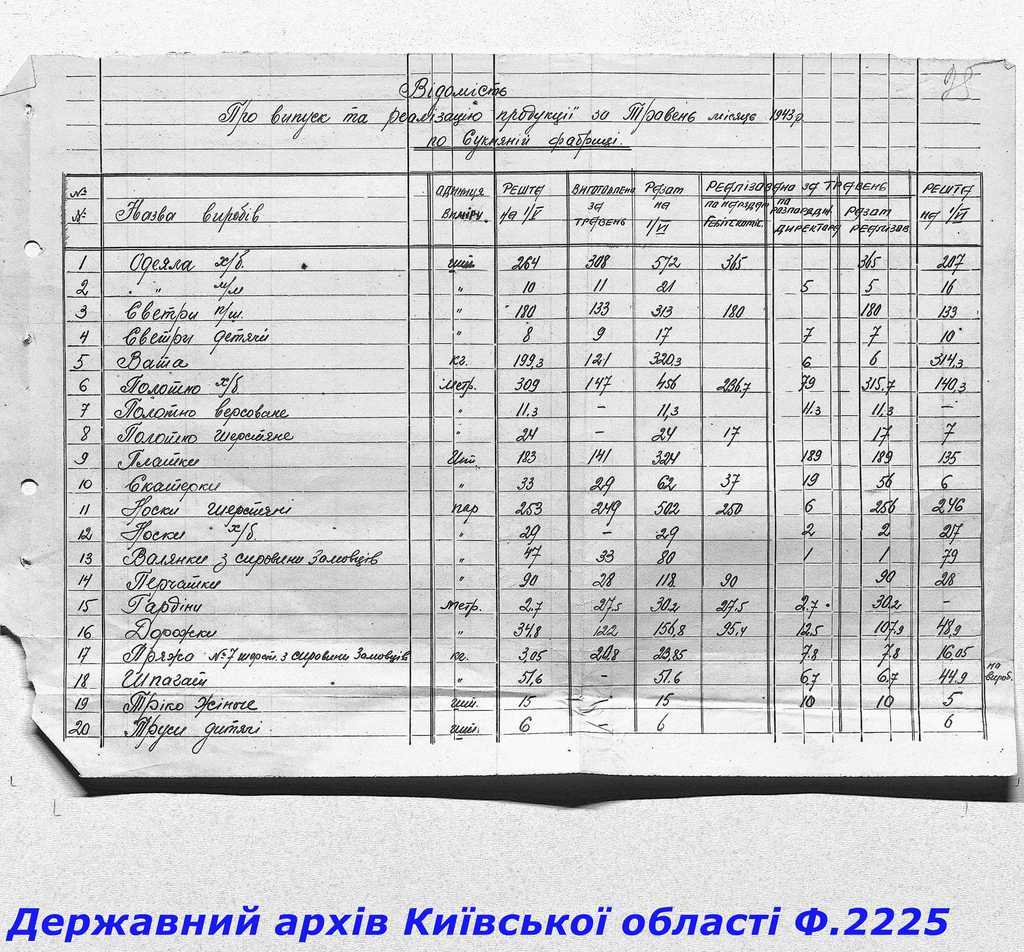 25
Відомість
Про випуск та реалізацію продукції за Травень місяць 1943 р
по Сукняній фабриці.
№ № Назва виробів одиниця виміру. Решта на 1/V виготовлено за травень Разом на 1/VI Реалізована за травень по нарядам Гебітскоміс. по розпорядж. директора Разом реалізов. Решта на 1/VI
1 Одеяла х/б. шт. 264 308 572 365 365 207
2 " " м/м " 10 11 21 5 5 16
3 Светри п/ш. " 180 133 313 180 180 133
4 Светри детячі " 8 9 17 7 7 10
5 Вата кг. 199,3 121 320,3 6 6 314,3
6 Полотно х/б метр. 309 147 456 236,7 79 315,7 140,3
7 Полотно версоване " 11,3 – 11,3 11,3 11,3 –
8 Полотно шерстяне " 24 – 24 17 17 7
9 Платки Шт. 183 141 324 189 189 135
10 Скатерки " 33 29 62 37 19 56 6
11 Носки шерстяні пар 253 249 502 250 6 256 246
12 Носки х/б. " 29 – 29 2 2 27
13 Валянки з сировини Замовців " 47 33 80 1 1 79
14 Перчатки " 90 28 118 90 90 28
15 Гардіни метр. 2,7 27,5 30,2 27,5 2,7 30,2 –
16 Дорожки " 34,8 122 156,8 95,4 12,5 107,9 48,9
17 Пряжа №7 шерст. з сировини Замовців кг. 3,05 20,8 23,85 7,8 7,8 16,05
18 Шпагат " 51,6 – 51,6 6,7 6,7 44,9 на вироб.
19 Тріко жіноче шт. 15 15 10 10 5
20 Труси дитячі шт. 6 6 6
Державний архів Київської області Ф.2225